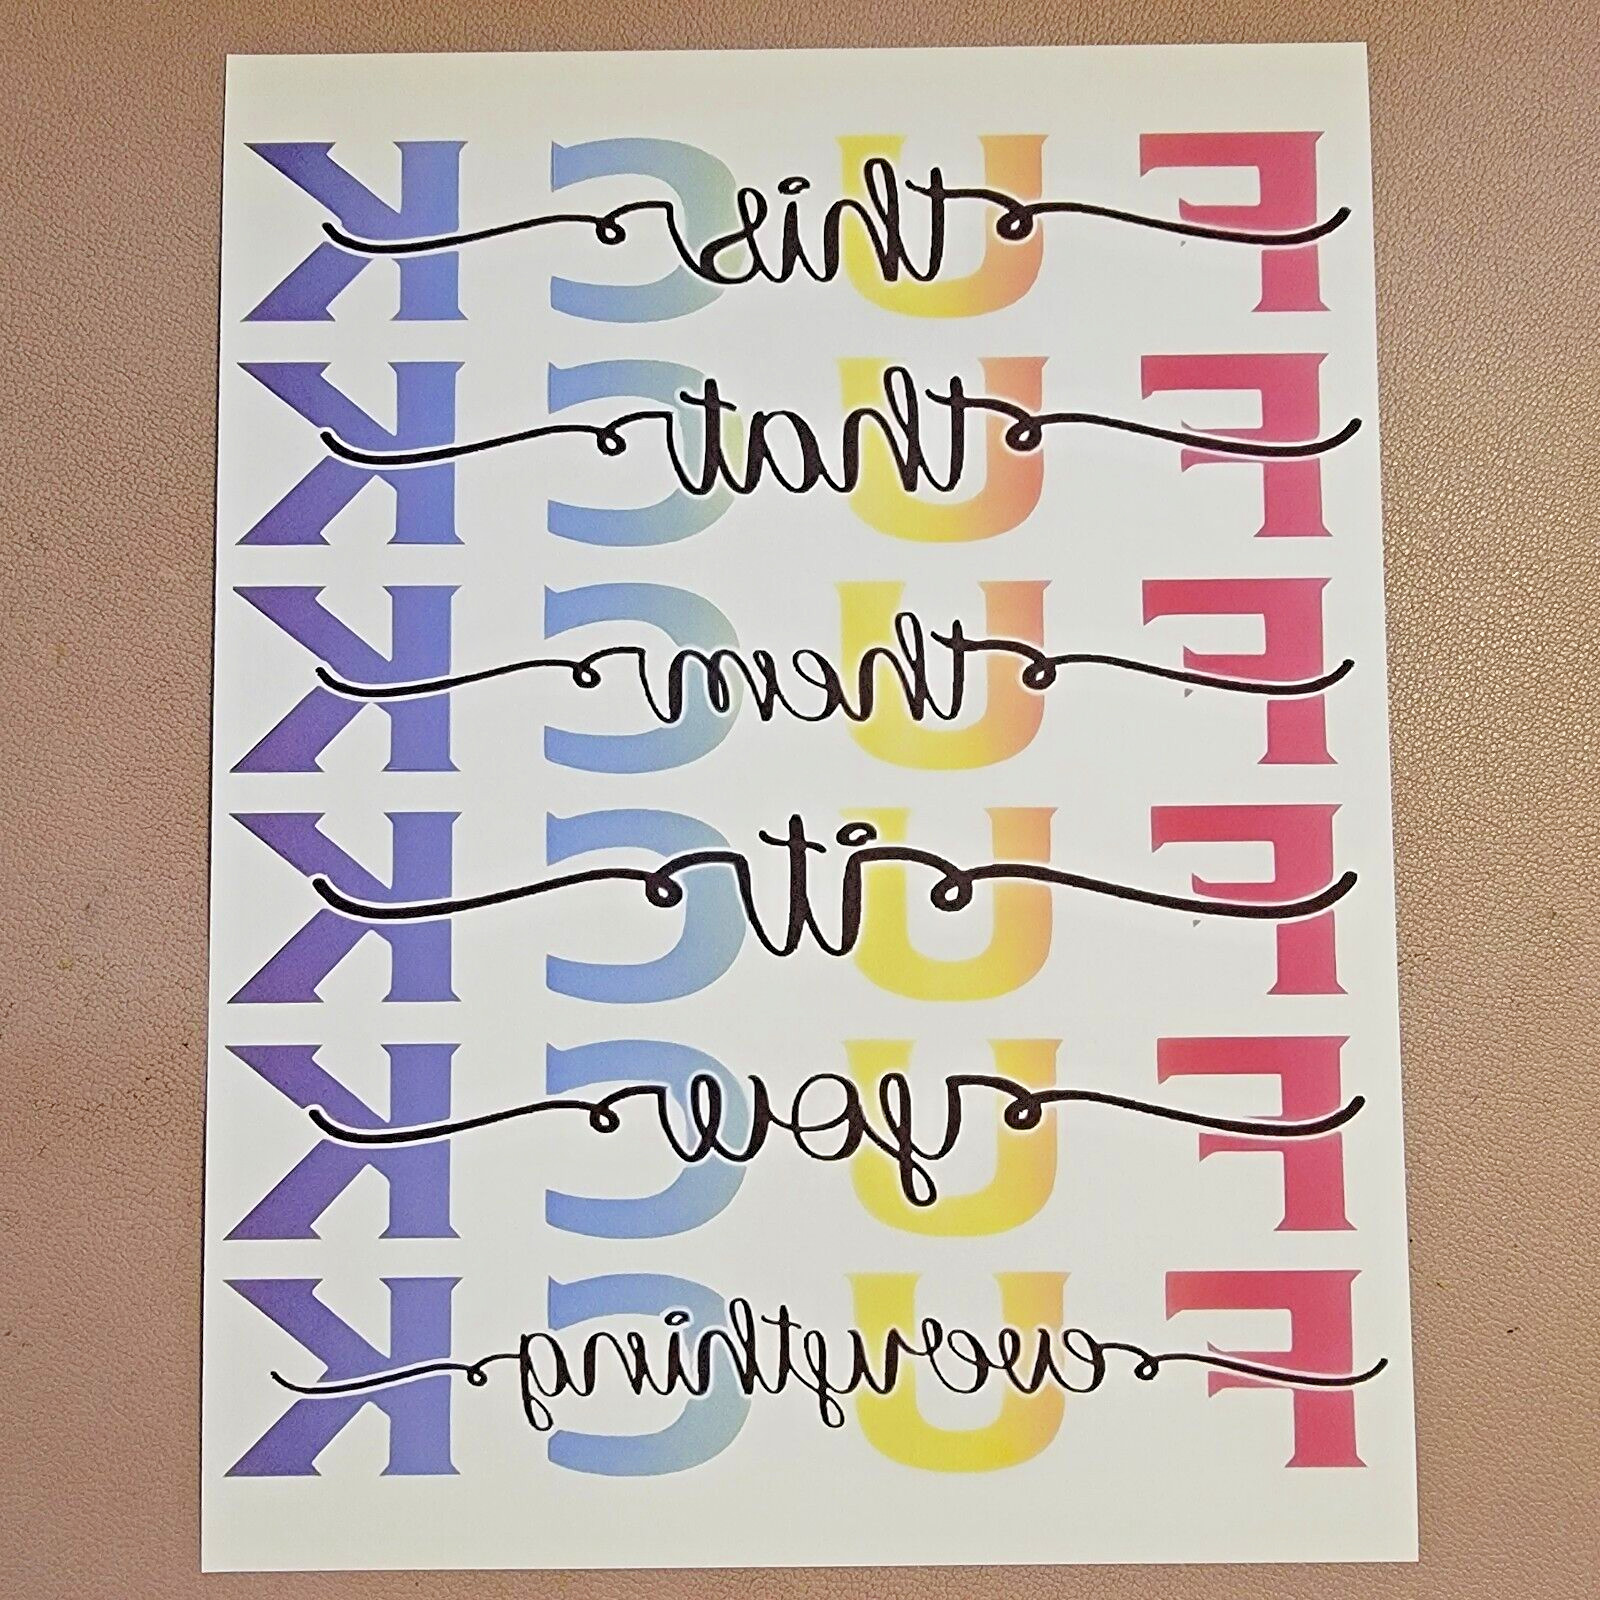 FUCK this
FUCK that
FUCK them
FUCK it
FUCK you
FUCK everything